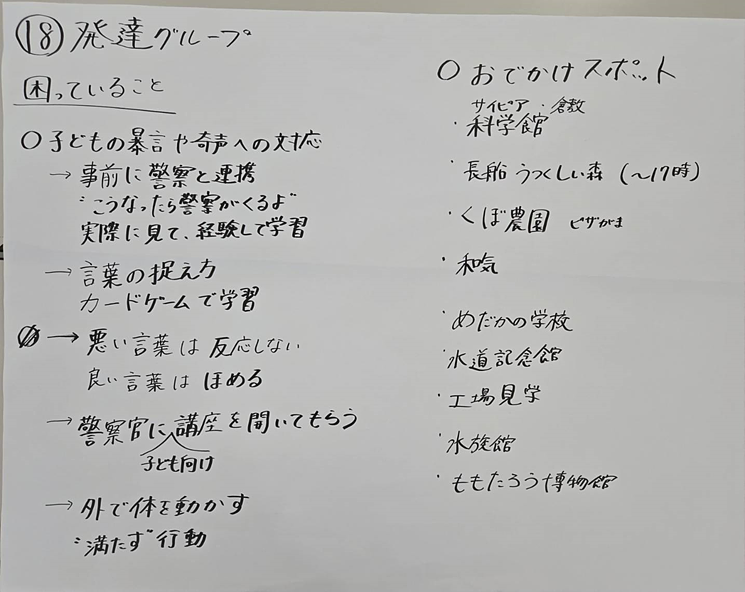 ⑱ 発達グループ
困っていること
○ 子どもの暴言や奇声への対応
→ 事前に警察と連携
"こうなったら警察がくるよ"
実際に見て、経験して学習
→ 言葉の捉え方
カードゲームで学習
→ 悪い言葉は 反応しない
良い言葉は ほめる
→ 警察官に講座を開いてもらう
子ども向け
→ 外で体を動かす
"満たす"行動
○ おでかけスポット
サイピア・倉敷
・科学館
・長船 うつくしい森 (〜17時)
・くぼ農園 ピザがま
・和気
・めだかの学校
・水道記念館
・工場見学
・水族館
・ももたろう博物館